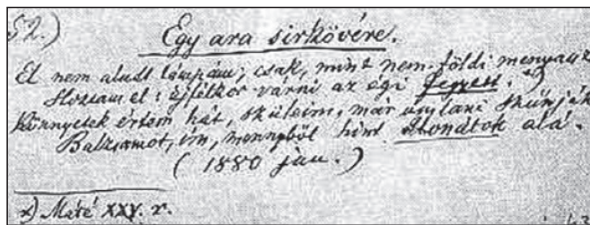 52.)
Egy ara sirkövére.
El nem aludt lámpám; csak, mint nem-földi menyasz
Hoztam el: éjfélkor várni az égi Jegyest. x)
Könnyetek értem hát, szüleim, már omlani szünjék
Balzsamot, im, mennyből hint abonátok alá.
(1880 jan.)
x) Máté XXV. r.